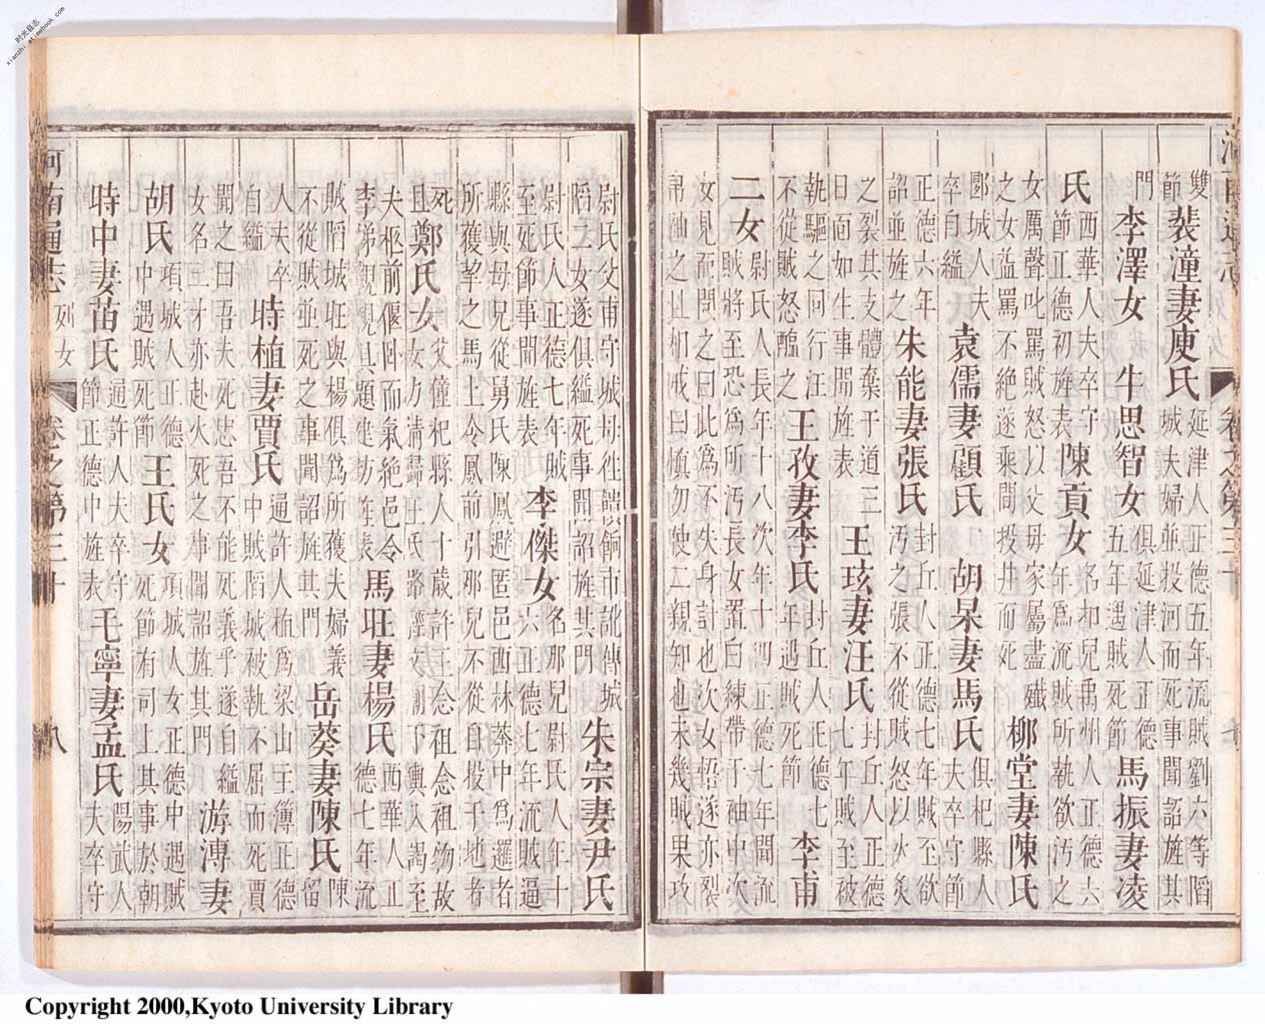 雙
節
裴潼妻庾氏
延津人正德五年流賊劉六等䧟
城夫婦並投河而死事聞詔旌其
門
李澤女 牛思智女
俱延津人正德
五年遇賊死節
馬振妻凌
氏
西華人夫卒守
節正德初旌表
陳貢女
名初兒禹州人正德六
年為流賊所執欲汚之
女厲聲叱罵賊怒以父母家屬盡殱
之女益罵不絶遂乘間投井而死
柳堂妻陳氏
郾城人夫
卒自縊
袁儒妻顧氏 胡杲妻馬氏
俱杞縣人
夫卒守節
正德六年
詔並旌之
朱能妻張氏
封丘人正德七年賊至欲
汚之張不從賊怒以火炙
之裂其支體棄于道三
日面如生事聞旌表
王玹妻汪氏
封丘人正德
七年賊至被
執驅之同行汪
不從賊怒醢之
王孜妻李氏
封丘人正德七
年遇賊死節
李甫
二女
尉氏人長年十八次年十四正德七年聞流
賊將至恐為所汚長女置白練帶于袖中次
女見而問之曰此為不失身計也次女悟遂亦裂
帛袖之且相戒曰慎勿使二親知也未幾賊果攻
尉氏父甫守城徃餉市訛傳城
䧟二女遂俱縊死事聞詔旌其門
朱宗妻尹氏
尉氏人正德七年賊
至死節事聞旌表
李傑女
名那兒尉氏人年十
六正德七年流賊逼
縣與母兄從舅氏陳鳳避匿邑西林莽中為邏者
所獲挈之馬上令鳳前引那兒不從自投于地者
死
且
鄭氏女
父僮杞縣人十歲許王念祖念祖物故
女力請歸王氏路經下輿入謁至
夫柩前偃臥而氣絶邑令
李梯親視且題建坊旌表
馬旺妻楊氏
西華人正
德七年流
賊䧟城旺與楊俱為所獲夫婦義
不從賊並死之事聞詔旌其門
岳葵妻陳氏
陳
留
人夫卒
自縊
時植妻賈氏
通許人植為梁山主簿正德
中賊䧟城被執不屈而死賈
聞之曰吾夫死忠吾不能死義乎遂自縊
女名三才亦赴火死之事聞詔旌其門
游溥妻
胡氏
項城人正德
中遇賊死節
王氏女
項城人女正德中遇賊
死節有司上其事於朝
時中妻苗氏
通許人夫卒守
節正德中旌表
毛寧妻孟氏
陽武人
夫卒守
河南通志 列女 卷之第三十 八
Copyright 2000,Kyoto University Library